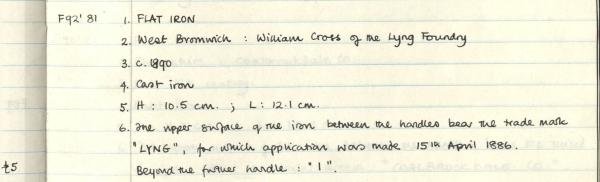 F92' 81 1. FLAT IRON
2. West Bromwich : William Cross of the Lyng Foundry
3. c.1890
4. Cast iron
5. H : 10.5 cm. ; L : 12.1 cm.
6. The upper surface of the iron between the handles bear the trade mark
"LYNG", for which application was made 15th April 1886.
£5 Beyond the further handle : "1".